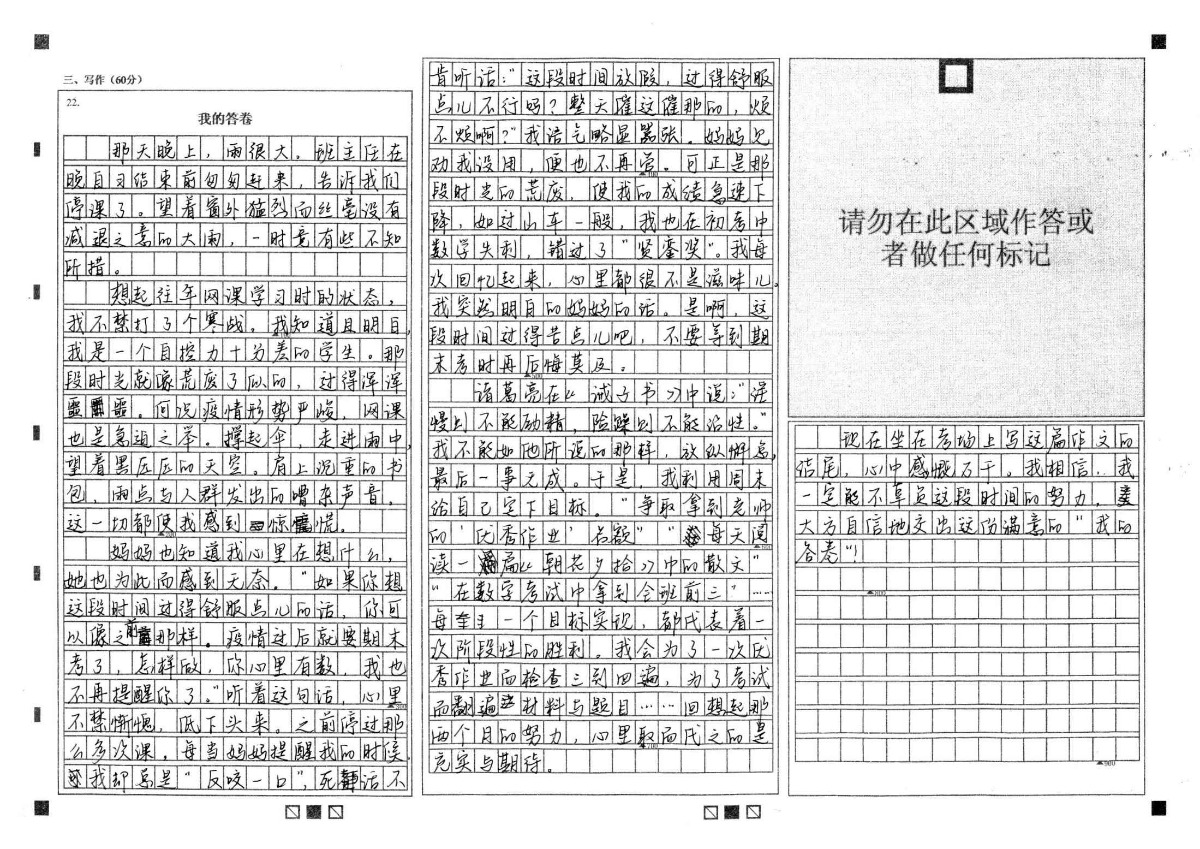 三、写作（60分）
22.
我的答卷
那天晚上，雨很大。班主任在
晚自习结束前匆匆赶来，告诉我们
停课了。望着窗外猛烈而丝毫没有
减退之意的大雨，一时竟有些不知
所措。
想起往年网课学习时的状态，
我不禁打了个寒战。我知道且明白，
我是一个自控力十分差的学生。那
段时光就像荒废了似的，过得浑浑
噩噩。何况疫情形势严峻，网课
也是急迫之举。撑起伞，走进雨中，
望着黑压压的天空。肩上沉重的书
包，雨点与人群发出的嘈杂声音，
这一切都使我感到惊慌。
妈妈也知道我心里在想什么，
她也为此而感到无奈。“如果你想
这段时间过得舒服点儿的话，你可
以像之前那样。疫情过后就要期末
考了，怎样做，你心里有数，我也
不再提醒你了。”听着这句话，心里
不禁惭愧，低下头来。之前停过那
么多次课，每当妈妈提醒我的时候
我却总是“反咬一口”，死话不
肯听话：“这段时间放假，过得舒服
点儿不行吗？整天催这催那的，烦
不烦啊？”我语气略显嚣张。妈妈见
劝我没用，便也不再管。可正是那
段时光的荒废，使我的成绩急速下
降，如过山车一般，我也在初考中
数学失利，错过了“贤銮奖”。我每
次回忆起来，心里都很不是滋味儿。
我突然明白的妈妈的话。是啊，这
段时间过得苦点儿吧，不要等到期
末考时再后悔莫及。
诸葛亮在《诫子书》中说：“淫
慢则不能励精，险躁则不能治性。”
我不能如他所说的那样，放纵懈怠，
最后一事无成。于是，我利用周末
给自己定下目标。“争取拿到老师
的‘优秀作业’名额”“每天阅
读一篇《朝花夕拾》中的散文”
“在数学考试中拿到全班前三”……
每一个目标实现，都代表着一
次阶段性的胜利。我会为了一次优
秀作业而检查三到四遍，为了考试
而翻遍材料与题目……回想起那
两个月的努力，心里取而代之的是
充实与期待。
现在坐在考场上写这篇作文的
结尾，心中感慨万千。我相信，我
一定能不辜负这段时间的努力，
大方自信地交出这份满意的“我的
答卷”！
请勿在此区域作答或
者做任何标记